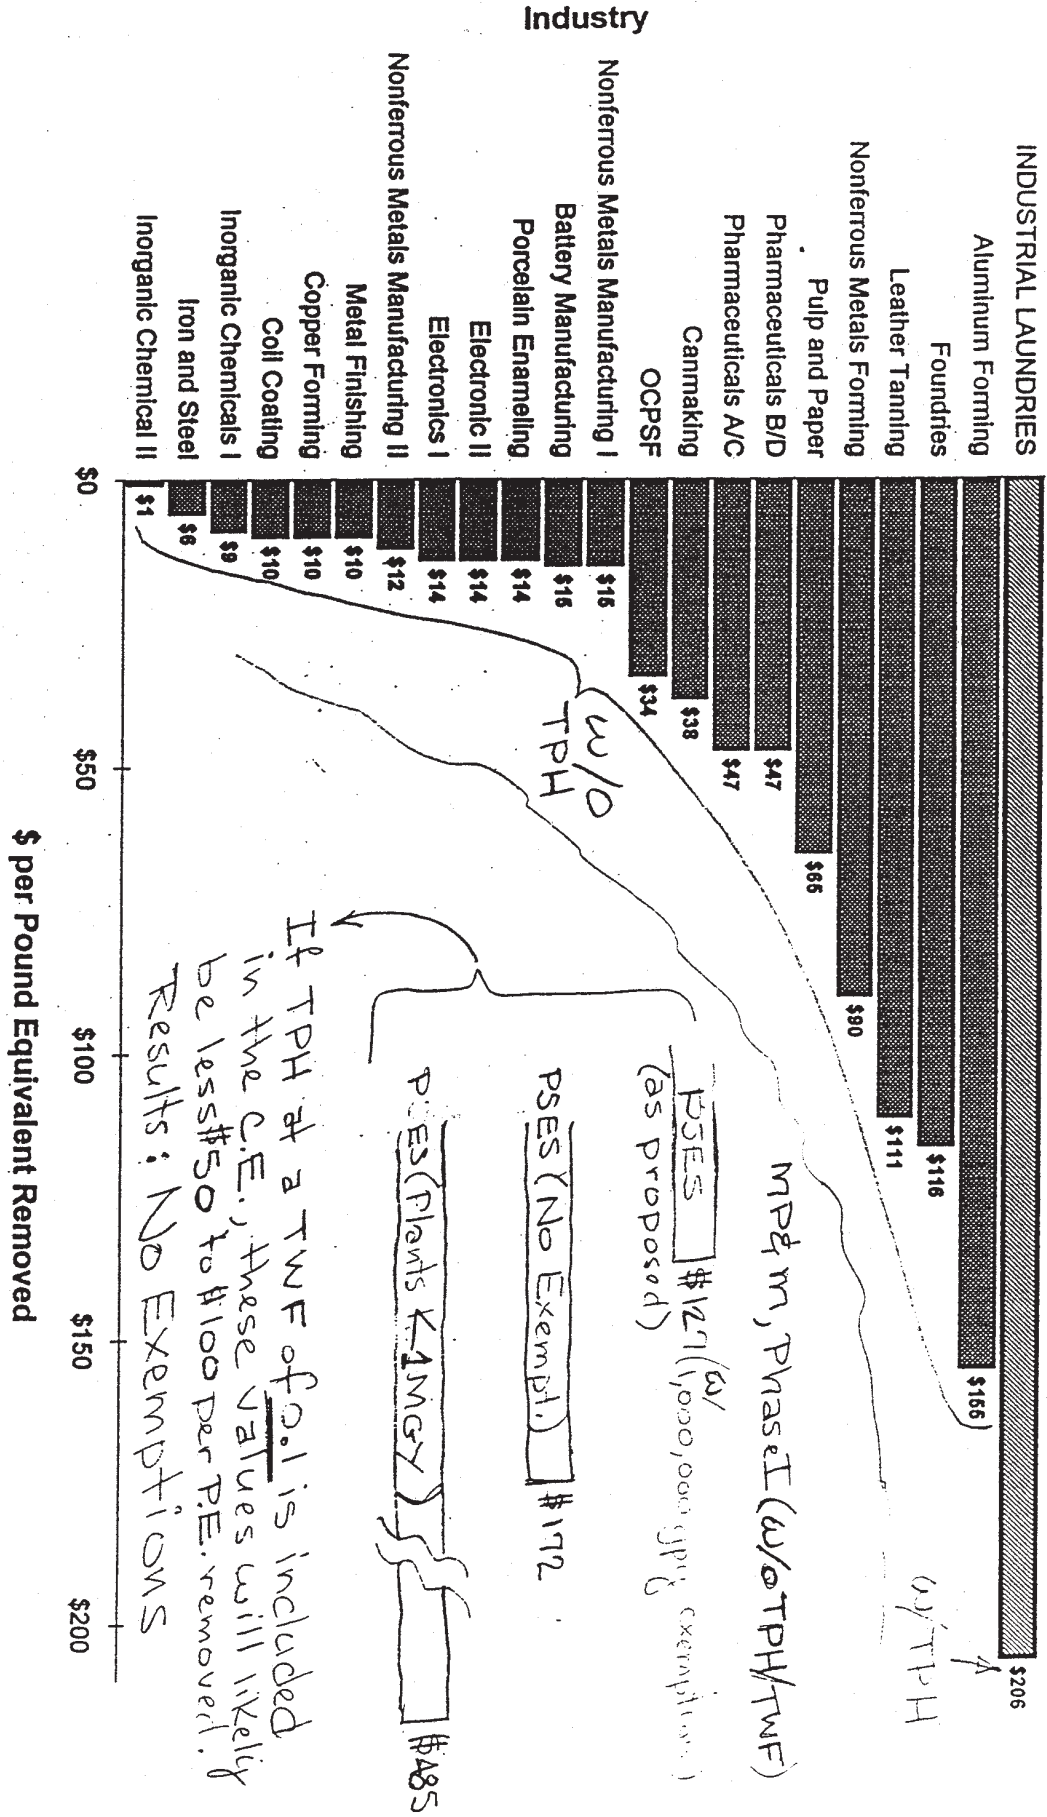 INDUSTRIAL LAUNDRIES $206
Aluminum Forming $155
Foundries $116
Leather Tanning $111
Nonferrous Metals Forming $90
Pulp and Paper $65
Pharmaceuticals B/D $47
Pharmaceuticals A/C $47
Canmaking $38
OCPSF $34
Nonferrous Metals Manufacturing I $15
Battery Manufacturing $15
Porcelain Enameling $14
Electronic II $14
Electronics I $14
Nonferrous Metals Manufacturing II $12
Metal Finishing $10
Copper Forming $10
Coil Coating $10
Inorganic Chemicals I $9
Iron and Steel $6
Inorganic Chemical II $1
Industry
$0 $50 $100 $150 $200
$ per Pound Equivalent Removed
w/TPH
w/o
TPH
MP&M, Phase I (w/o TPH/TWF)
PSES $127 (w/ 1,000,000 gpy exemption)
(as proposed)
PSES (No Exempt.) $172
PSES (Plants < 1MGY) $485
If TPH at a TWF of 0.1 is included
in the C.E., these values will likely
be less $50 to $100 per P.E. removed.
Results: No Exemptions